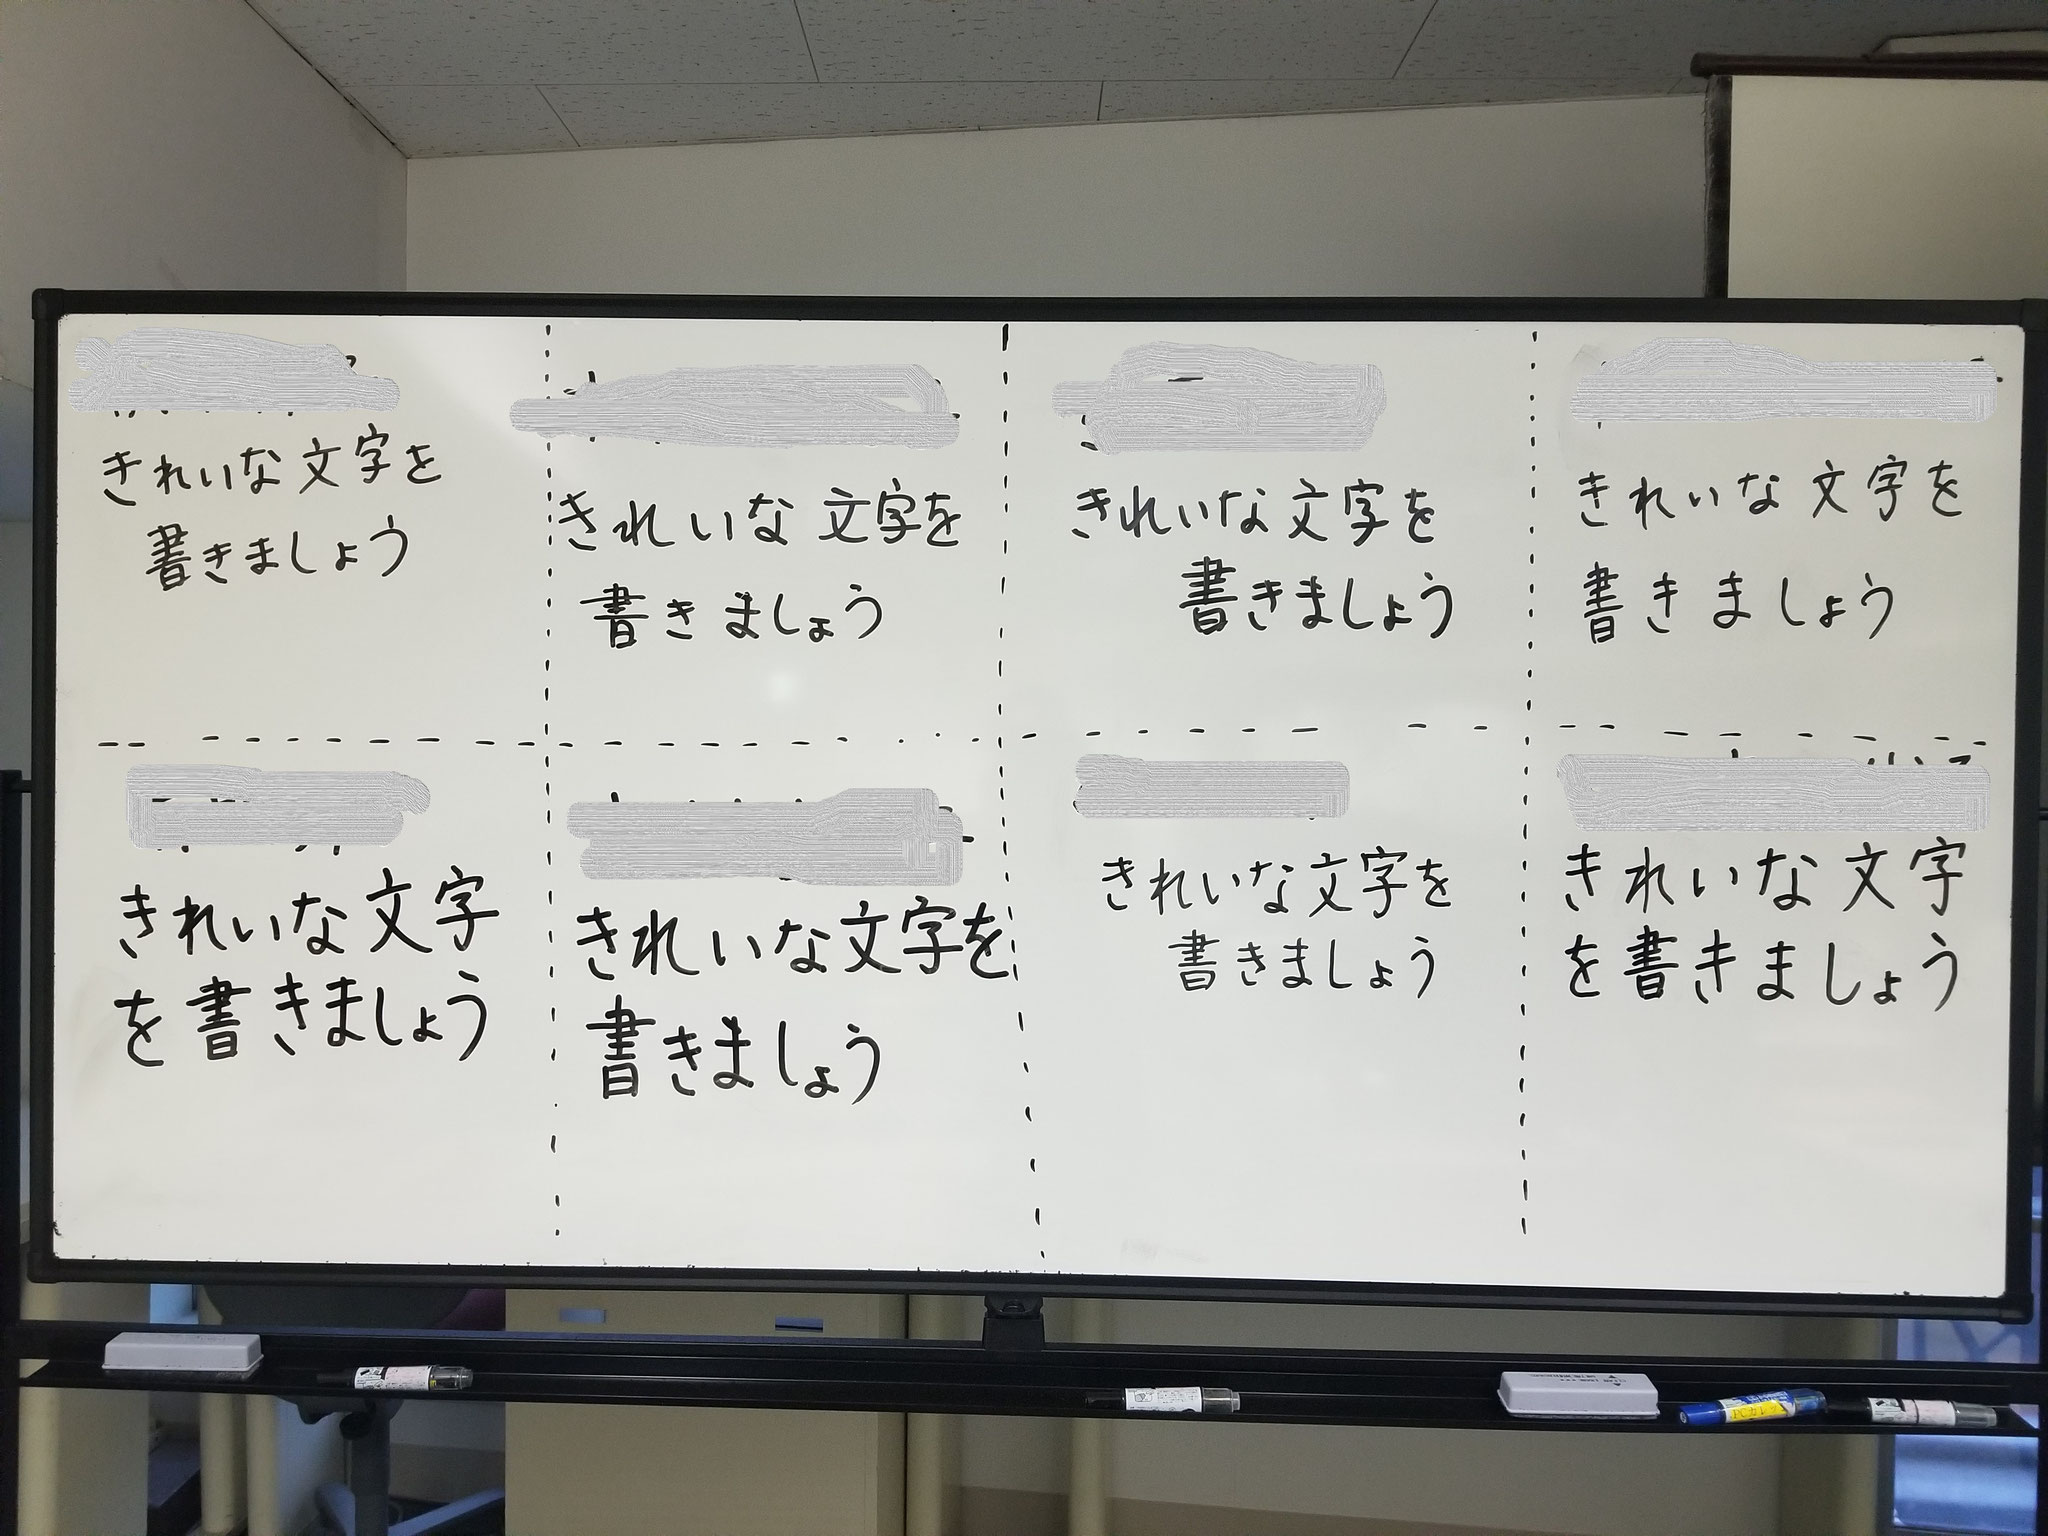 きれいな文字を
書きましょう
きれいな文字を
書きましょう
きれいな文字を
書きましょう
きれいな文字を
書きましょう
きれいな文字
を書きましょう
きれいな文字を
書きましょう
きれいな文字を
書きましょう
きれいな文字
を書きましょう